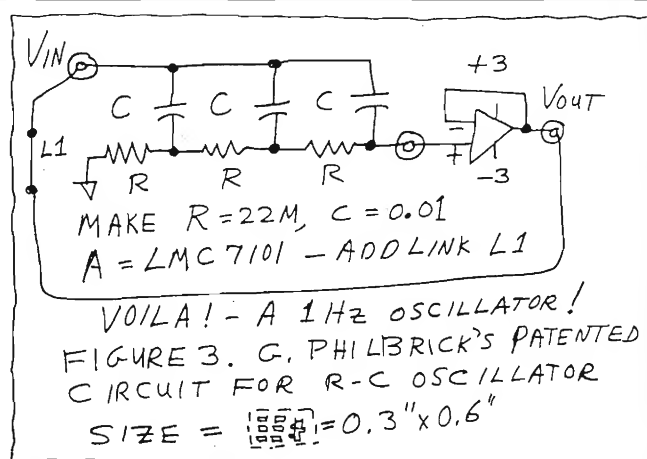 VIN
+3
C C C
VOUT
-
+
L1
-3
R R R
MAKE R=22M, C=0.01
A=LMC7101 - ADD LINK L1
VOILA! - A 1Hz OSCILLATOR!
FIGURE 3. G. PHILBRICK'S PATENTED
CIRCUIT FOR R-C OSCILLATOR
SIZE = =0.3"x0.6"